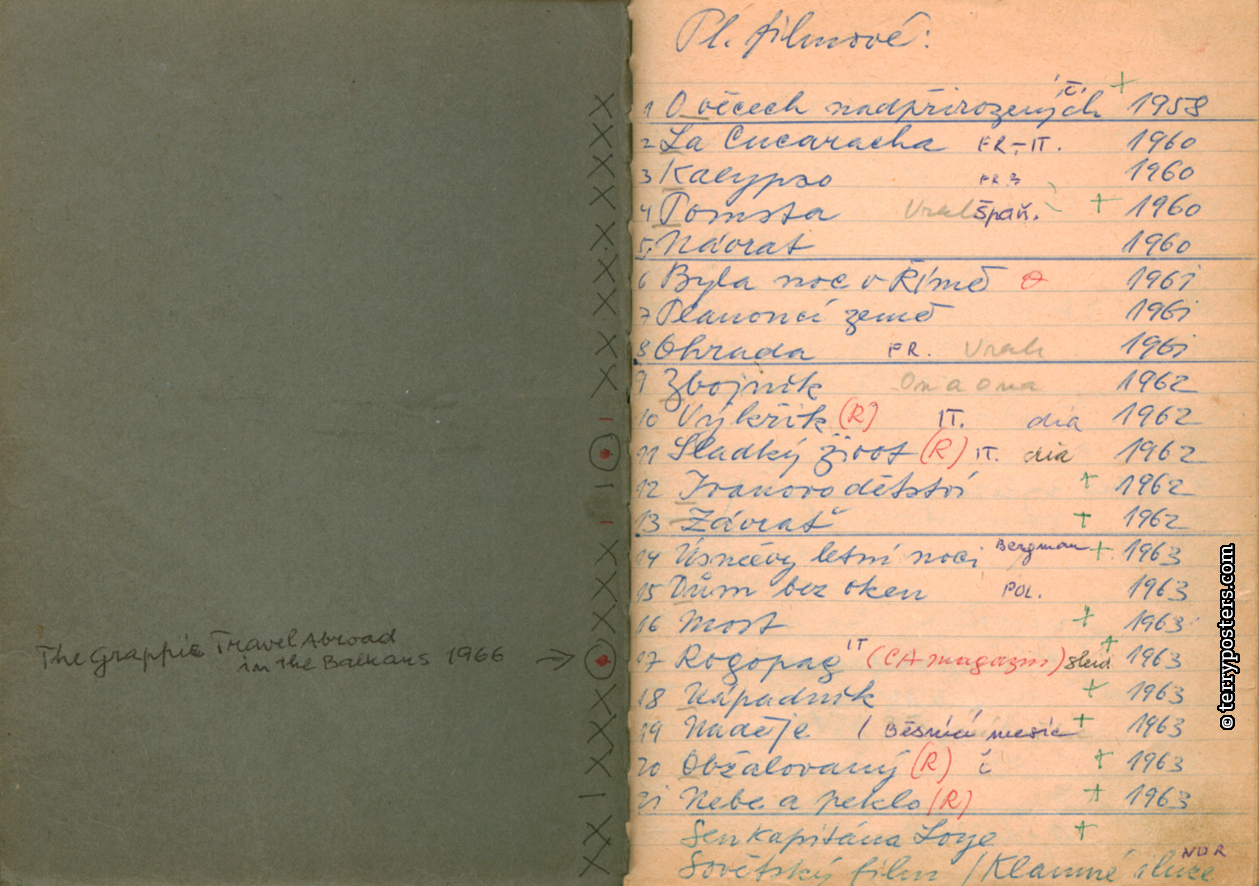 The Grappic Travel Abroad
in the Balkans 1966 →
Pl. filmové:
1 O věcech nadpřirozených č. + 1958
2 La Cucaracha FR-IT. 1960
3 Kalypso FR. 1960
4 Pomsta Vrak Špaň. + 1960
5. Návrat 1960
6 Byla noc v Římě 1961
7 Planoucí země 1961
8 Ohrada FR. Vrak 1961
9 Zbojník On a ona 1962
10 Výkřik (R) IT. dia 1962
11 Sladký život (R) IT. dia 1962
12 Ivanovo dětství + 1962
13 Závrať + 1962
14 Úsměvy letní noci Bergman + 1963
15 Dům bez oken POL. 1963
16 Most + 1963
17 Rogopag IT (CA magazin) + 1963
18 Nápadník + 1963
19 Naděje / Běsnící měsíc + 1963
20 Obžalovaný (R) č + 1963
21 Nebe a peklo (R) + 1963
Sen kapitána Loye +
Sovětský film / Klamné iluze NDR
© terryposters.com